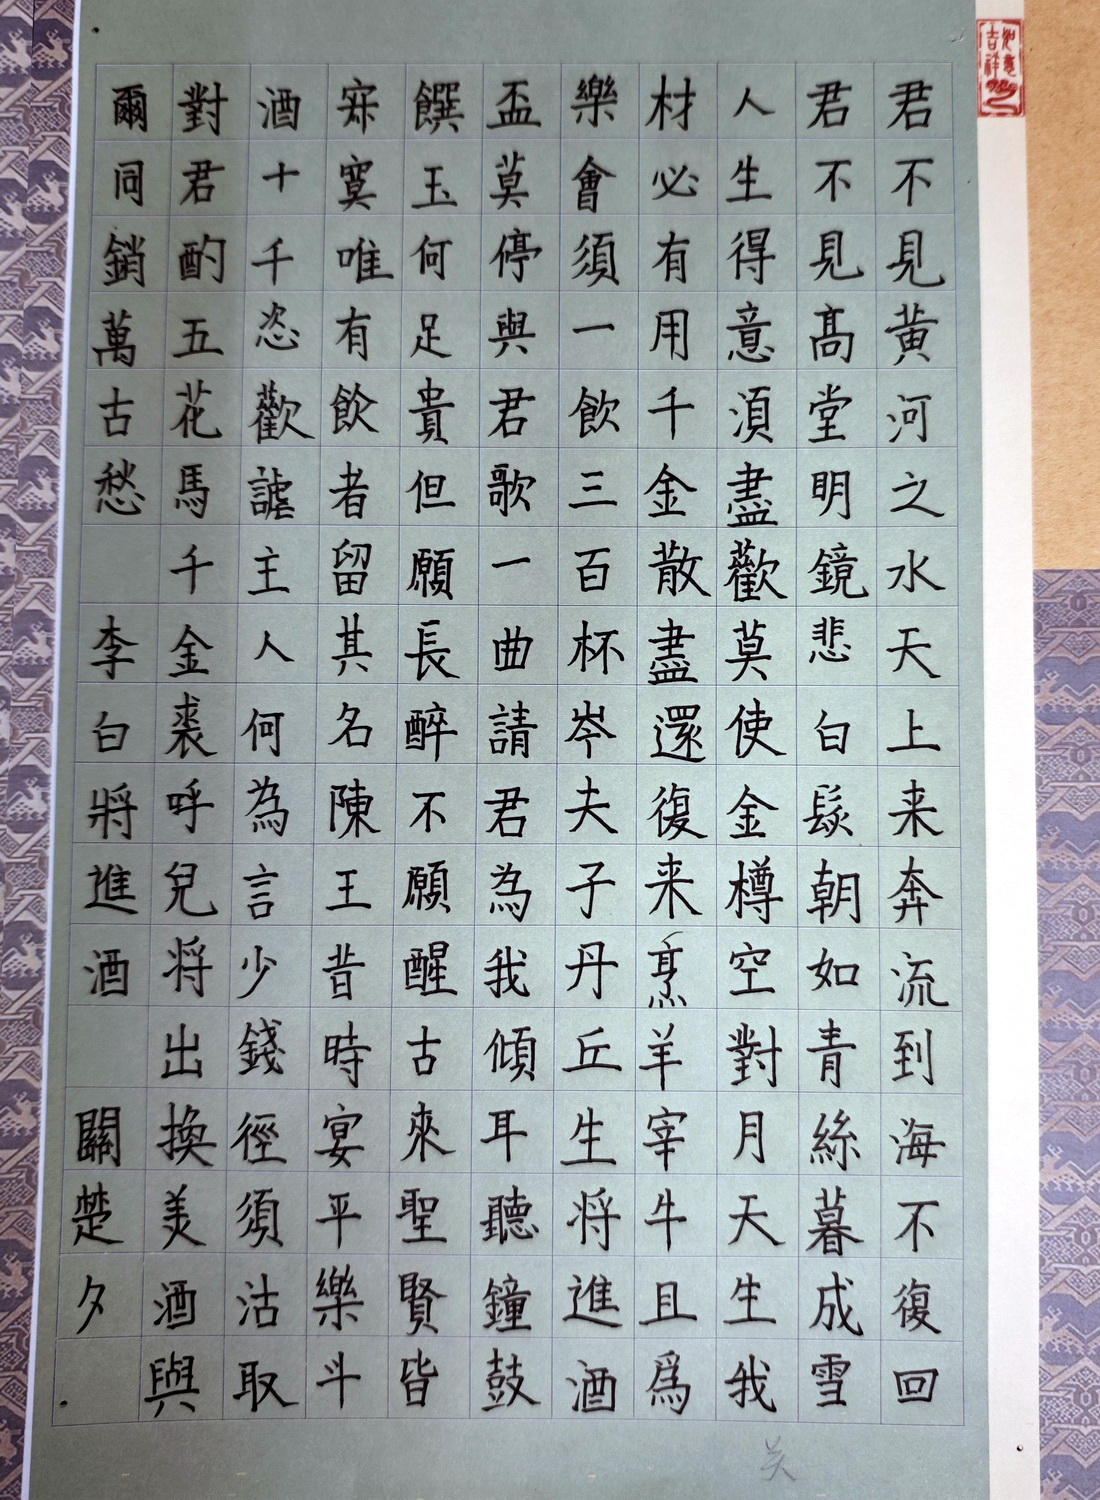 君不見黃河之水天上来奔流到海不復回
君不見高堂明鏡悲白髮朝如青絲暮成雪
人生得意須盡歡莫使金樽空對月天生我
材必有用千金散盡還復来烹羊宰牛且爲
樂會須一飲三百杯岑夫子丹丘生将進酒
盃莫停與君歌一曲請君為我傾耳聽鐘鼓
饌玉何足貴但願長醉不願醒古來聖賢皆
寂寞唯有飲者留其名陳王昔時宴平樂斗
酒十千恣歡謔主人何為言少錢徑須沽取
對君酌五花馬千金裘呼兒将出換美酒與
爾同銷萬古愁 李白將進酒 關楚夕